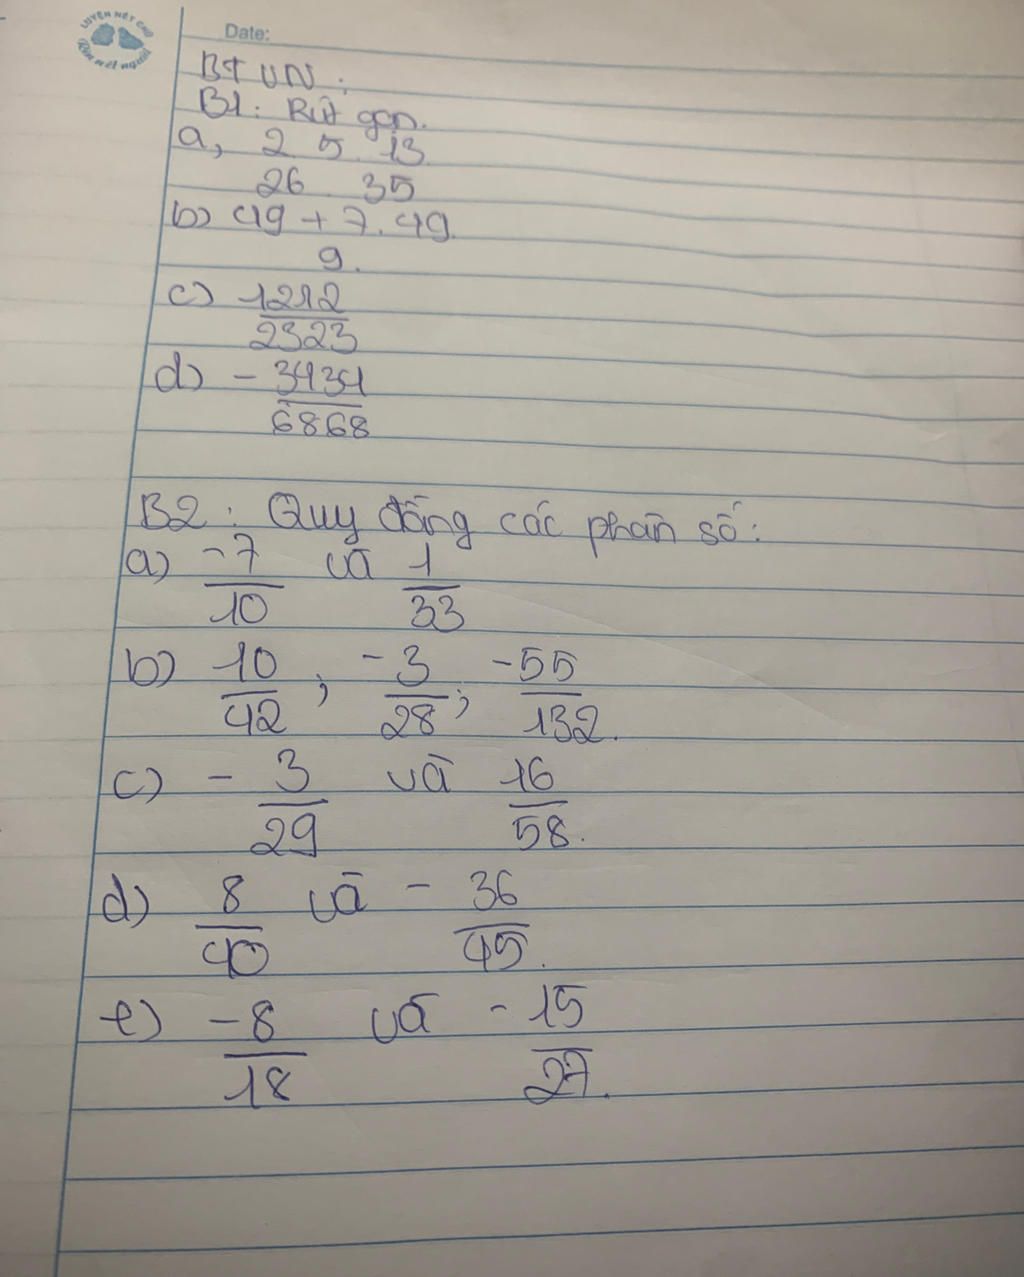 LUYỆN NÉT CHỮ
Rèn nết người
Date:
BTVN:
B1: Rút gọn.
a, 2 5 13
26 35
b) 49 + 7.49
9.
c) 1212
2323
d) - 3434
6868
B2: Quy đồng các phân số:
a) -7 và 1
10 33
b) 10 ; -3 ; -55
42 28 132.
c) - 3 và 16
29 58.
d) 8 và - 36
40 45.
e) -8 và - 15
18 27.